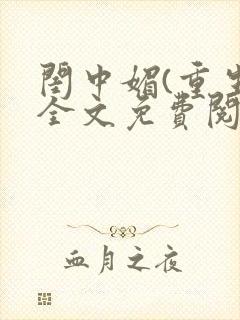 閨中媚(重生
全文免費閱
血月之夜